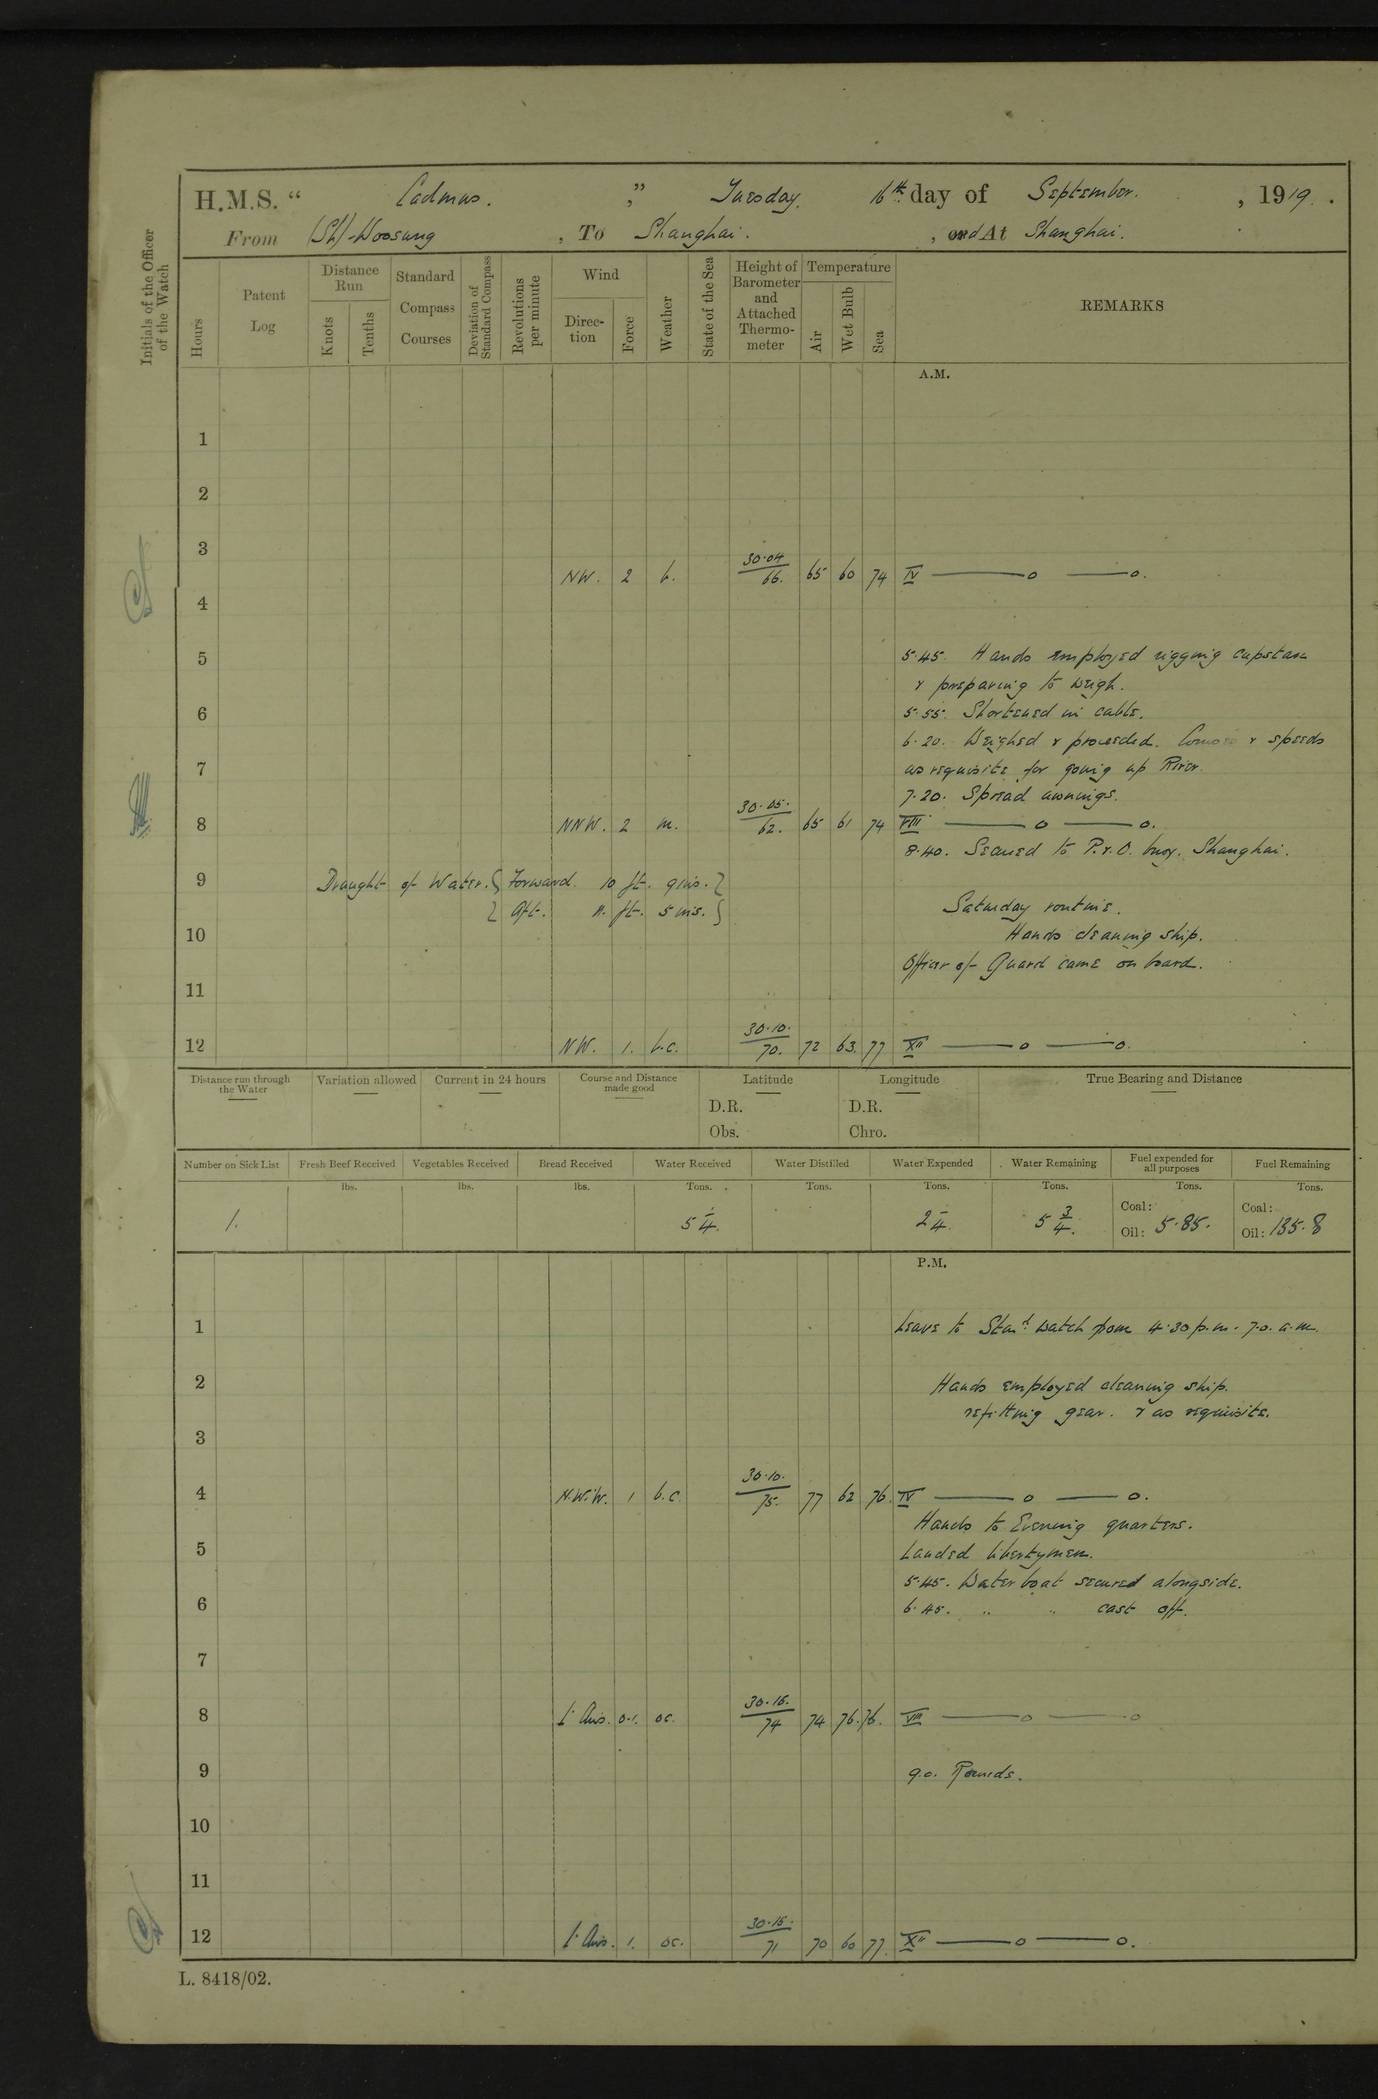 H.M.S. “ Cadmus. ” , Tuesday. 16th day of September. , 1919 .
From (Sh)-Woosung , To Shanghai. , and At Shanghai.
Initials of the Officer of the Watch
Hours
Patent Log
Distance Run
Knots
Tenths
Standard Compass Courses
Deviation of Standard Compass
Revolutions per minute
Wind
Direction
Force
Weather
State of the Sea
Height of Barometer and Attached Thermometer
Temperature
Air
Wet Bulb
Sea
REMARKS
A.M.
1
2
3
NW. 2 b. 30.04/66. 65 60 74 IV ——o ——o.
4
5 5.45. Hands employed rigging capstan
& preparing to weigh.
6 5.55. Shortened in cable.
6.20. Weighed & proceeded. & speeds
7 as requisite for going up River.
7.20. Spread awnings.
8 NNW. 2 m. 30.05./62. 65 61 74 VIII ——o ——o.
8.40. Secured to P.&O. buoy. Shanghai.
9 Draught of Water. { Forward. 10 ft. 9 ins. }
{ Aft. 11. ft. 5 ins. } Saturday routine.
10 Hands cleaning ship.
Officer of Guard came on board.
11
12 NW. 1. b.c. 30.10./70. 72 63. 77 XII ——o ——o.
Distance run through the Water
Variation allowed
Current in 24 hours
Course and Distance made good
Latitude
Longitude
True Bearing and Distance
D.R. D.R.
Obs. Chro.
Number on Sick List
Fresh Beef Received
Vegetables Received
Bread Received
Water Received
Water Distilled
Water Expended
Water Remaining
Fuel expended for all purposes
Fuel Remaining
lbs. lbs. lbs. Tons. Tons. Tons. Tons. Tons. Tons.
1. 5 1/4. 2 1/4. 5 3/4. Coal: Oil: 5.85. Coal: Oil: 135.8
P.M.
1 Leave to Starbd watch from 4.30 p.m. - 7.0. a.m.
2 Hands employed cleaning ship.
refitting gear. & as requisite.
3
4 N.W.W. 1 b.c. 30.10./75. 77 62 76. IV ——o ——o.
Hands to Evening quarters.
5 Landed libertymen.
5.45. Water boat secured alongside.
6 6.45. " " cast off.
7
8 Lt. Airs. 0-1. oc. 30.15./74 74 76. 76. VIII ——o ——o
9 9.0. Rounds.
10
11
12 Lt. Airs. 1. oc. 30.15./71 70 60 77. XII ——o ——o.
L. 8418/02.